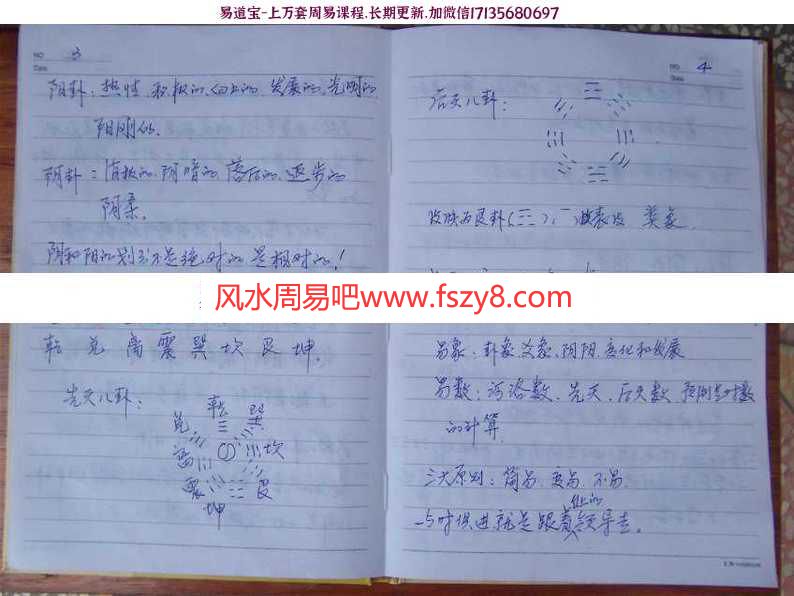 易道宝-上万套周易课程.长期更新.加微信17135680697
NO 3
Date
阳卦：热性.积极的.向上的.发展的.光明的
阳刚的.
阴卦：消极的.阴暗的.落后的.退步的
阴柔.
阴和阳的划分不是绝对的是相对的！
风水周易吧www.fszy8.com
乾 兑 离 震 巽 坎 艮 坤.
先天八卦：
乾 巽
兑
离 坎
震 艮
坤
NO 4
Date
后天八卦：
易象：卦象.爻象.阴阳.变化和发展
易数：河洛数.先天.后天数.预测与对数
的计算.
三大原则：简易.变易.不易.
与时俱进就是跟着领导走.